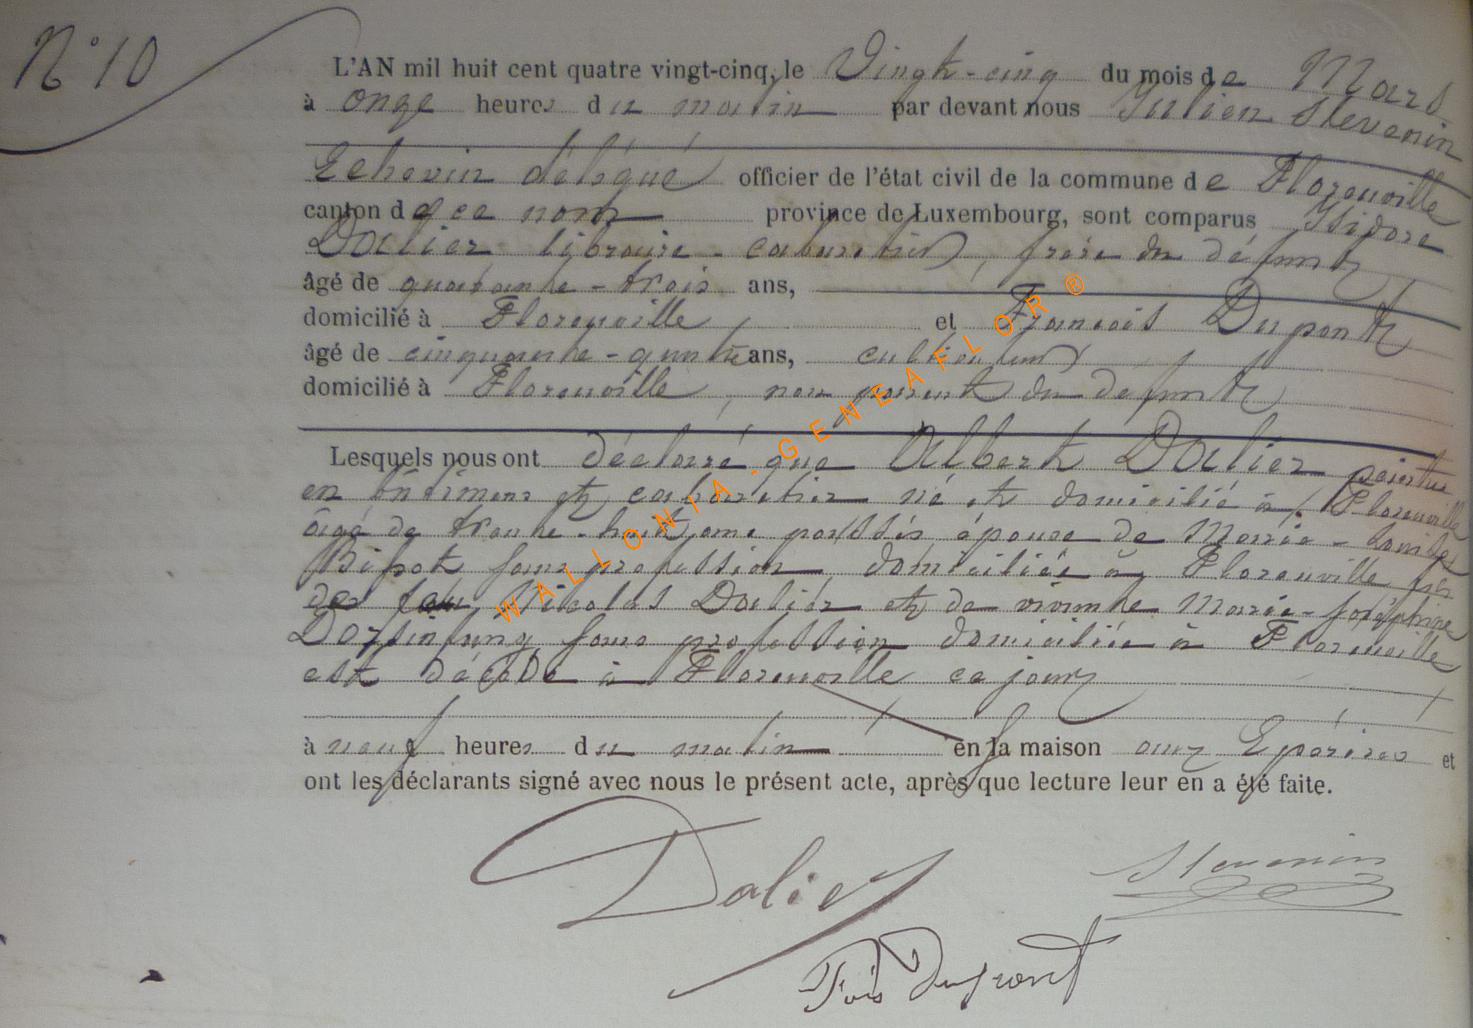 N° 10
L'AN mil huit cent quatre vingt-cinq, le Vingt-cinq du mois de Mars
à onze heures du matin par devant nous Julien Stevenin
Echevin délégué officier de l'état civil de la commune de Florenville
canton de ce nom province de Luxembourg, sont comparus Isidore
Dalier libraire - cabaretier, frère du défunt
âgé de quarante-trois ans,
domicilié à Florenville, et François Dupont
âgé de cinquante-quatre ans, cultivateur
domicilié à Florenville, non parent du défunt
Lesquels nous ont déclaré que Albert Dalier peintre
en bâtiment et cabaretier né et domicilié à Florenville
âgé de trente-huit ans passés époux de Marie-Louise
sans profession domiciliée à Florenville fils
de feu Nicolas Dalier et de vivante Marie-Joséphine
sans profession domiciliée à Florenville
est décédé à Florenville ce jour
à neuf heures du matin en la maison aux Epérires et
ont les déclarants signé avec nous le présent acte, après que lecture leur en a été faite.
Dalier
Stevenin
Fois Dupont
WALLONIA-GENEAFLOR®